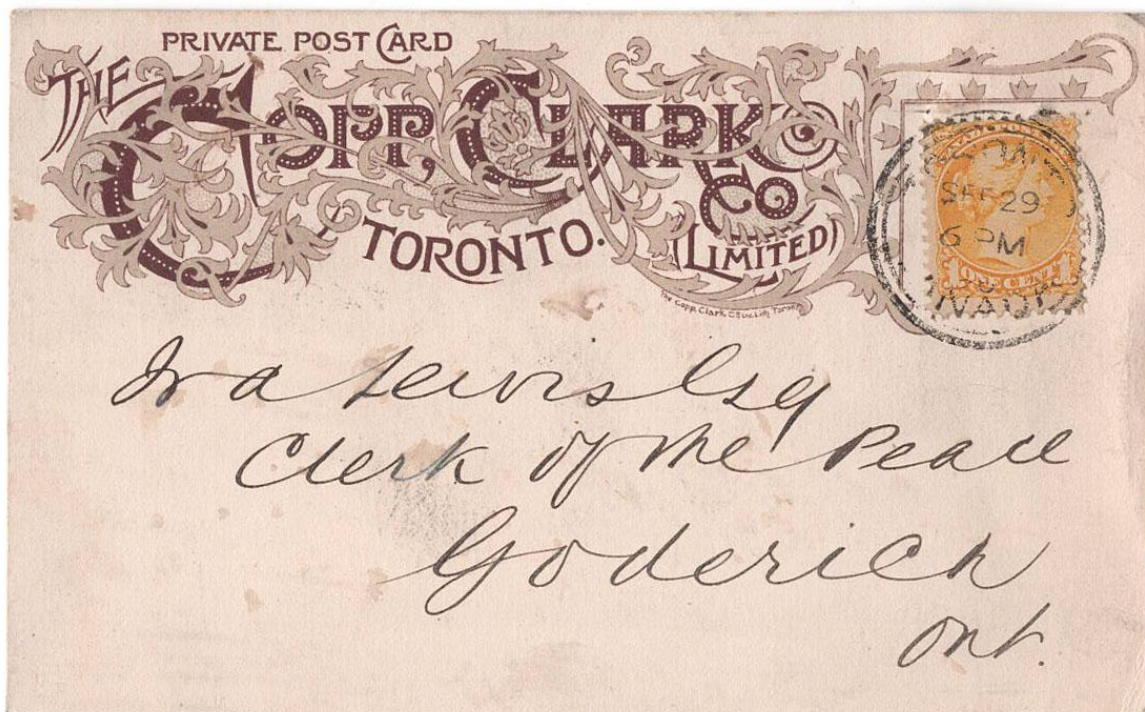 PRIVATE POST CARD
THE COPP, CLARK CO
TORONTO. (LIMITED)
The Copp, Clark Co. Lim. Toronto
SEP 29
6 PM
1 ONE CENT 1
Ira Lewis Esq
Clerk of the Peace
Goderich
Ont.